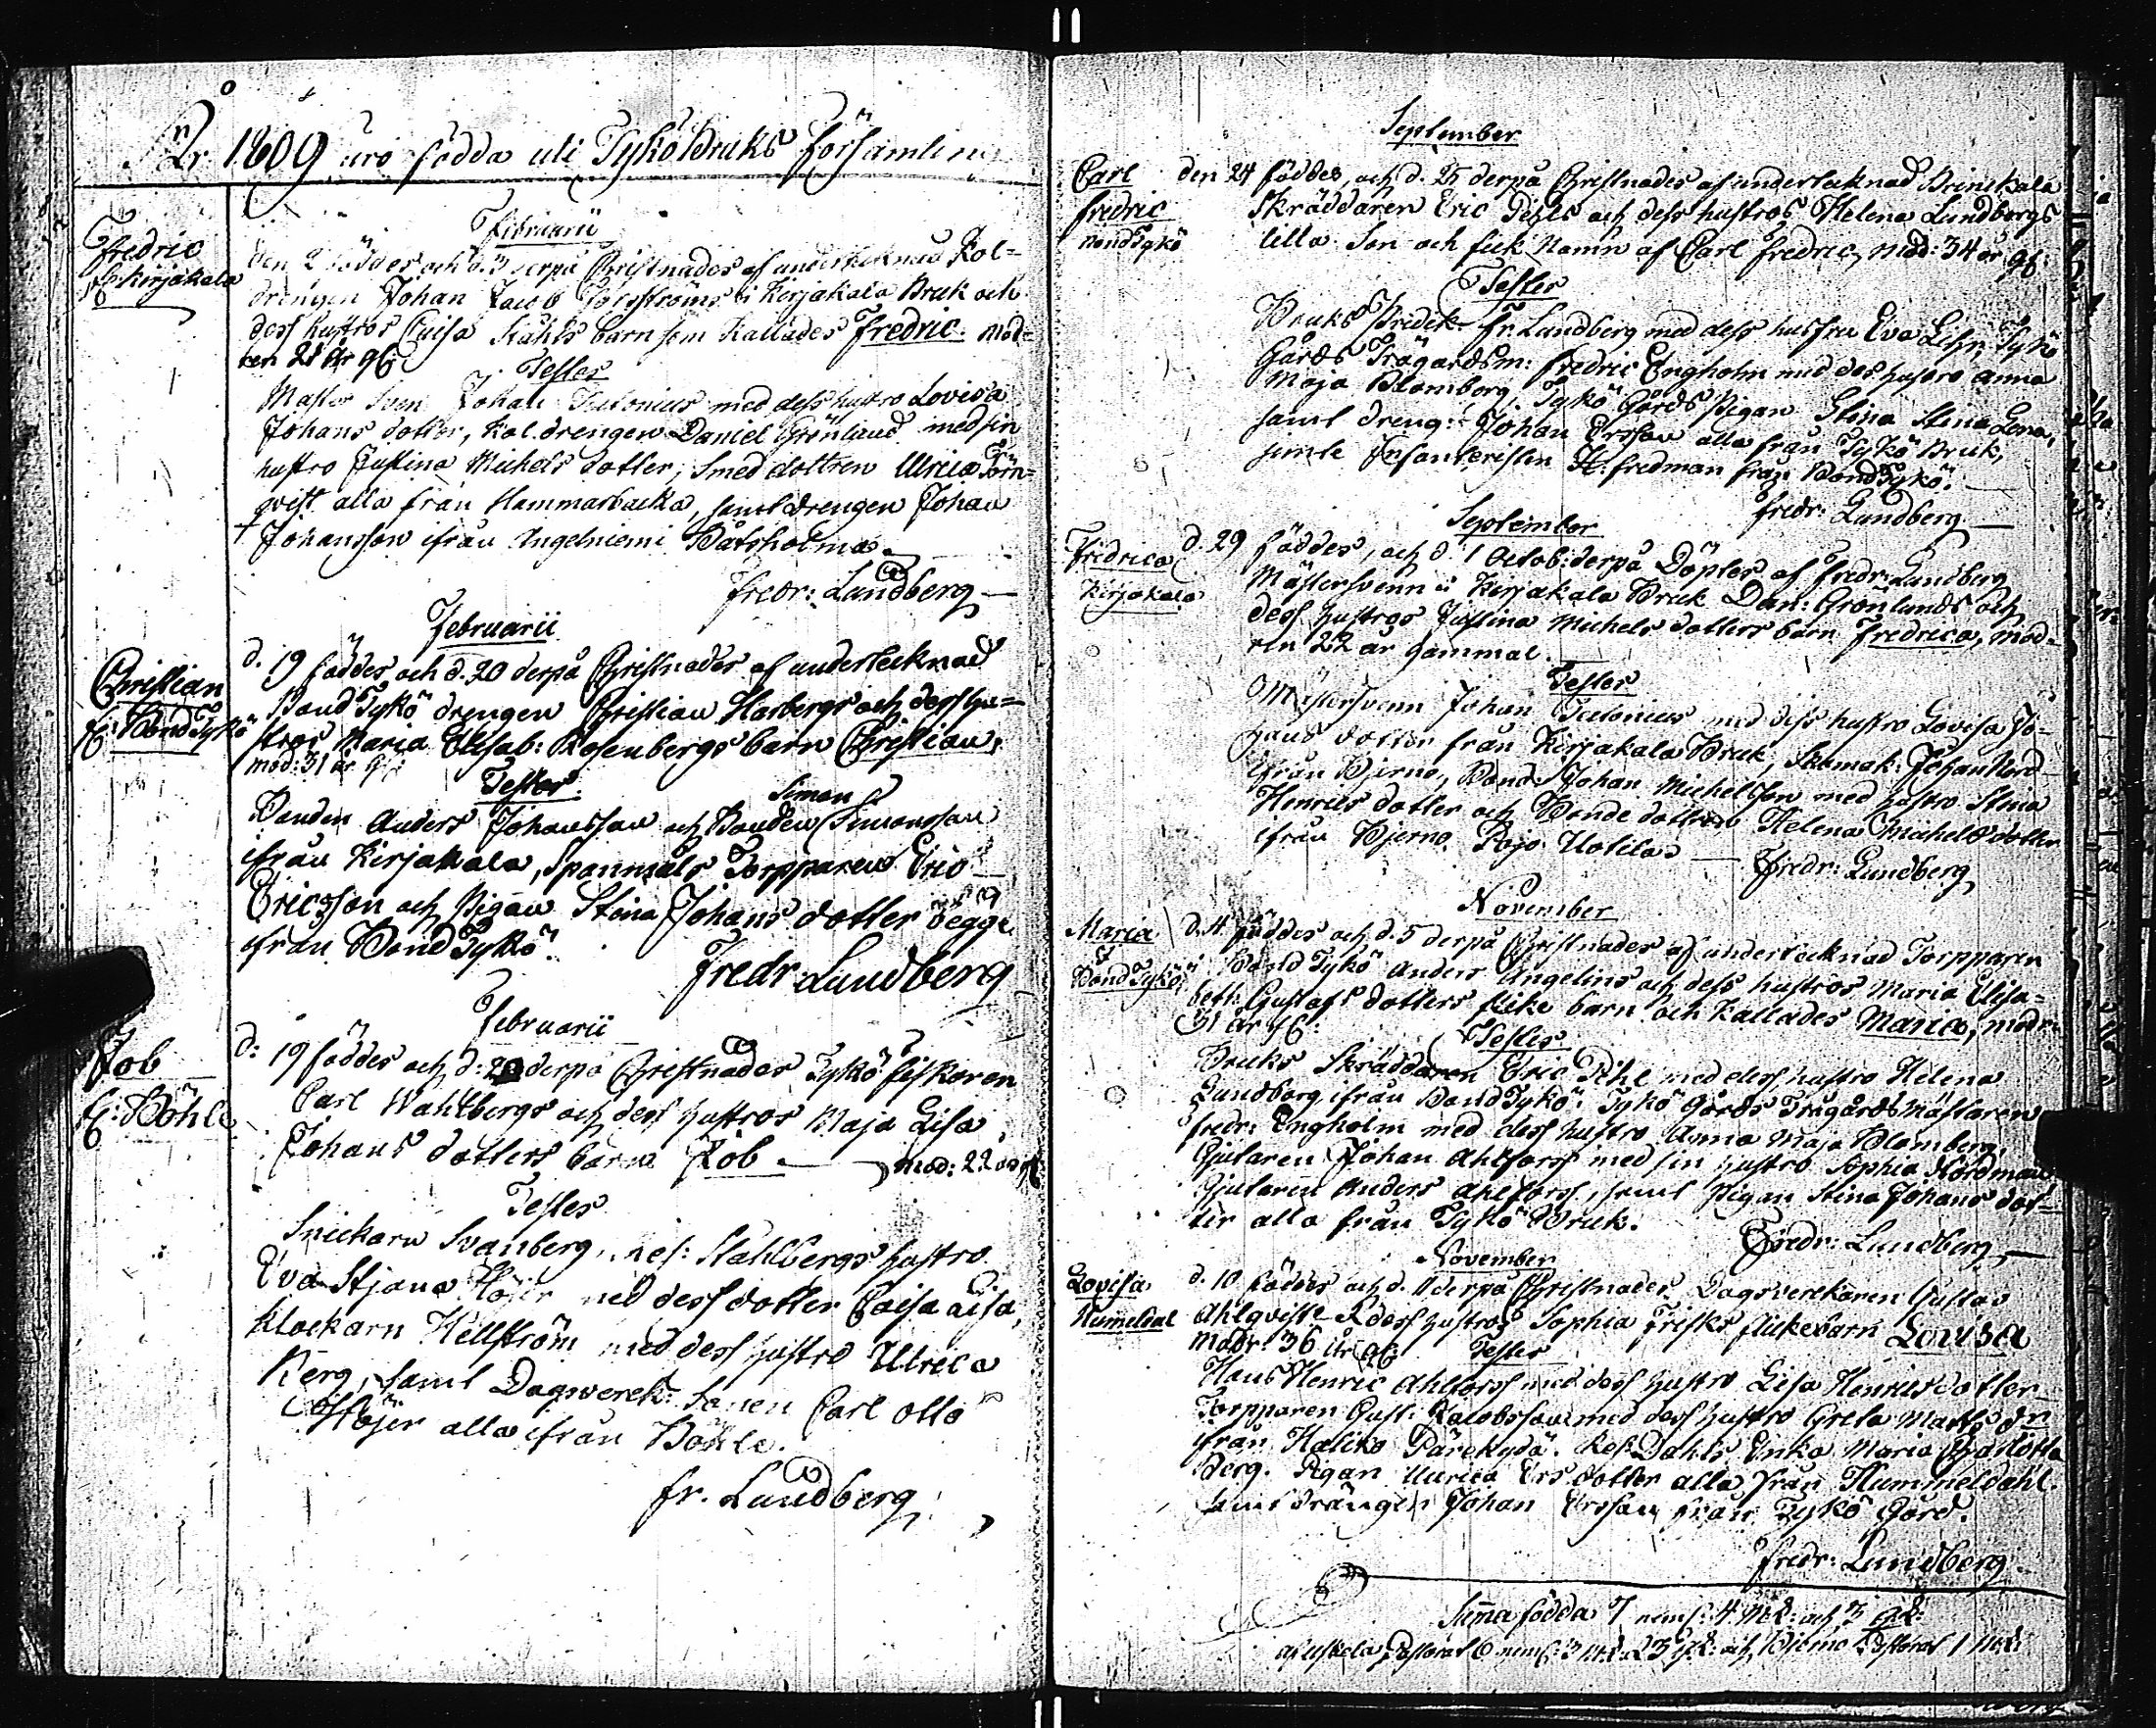 År 1809 äro födda uti Tykö Bruks Församling
Februarii
Fredric
Kirjakala
den 2 föddes och d. 3 derpå Christnades af undertecknad Kol=
drengen Johan Jacob Forsströms i Kirjakala Bruk och
dess hustros Caisa Ståhls barn som kallades Fredric. mod=
ren 28 år gl:
Testes
Mäster Sven Johan Tulonius med dess hustro Lovisa
Johans dotter, Kol.drengen Daniel Grönlund med sin
hustro Justina Michels dotter, Smed dottren Ulrica Törn=
qvist alla från Hammarbacka, samt drengen Johan
Johansson ifrån Angelniemi Båtsholma.
Fredr: Lundberg
Februarii
Christian
fr: Bond Tykö
d. 19 föddes och d. 20 derpå Christnades af undertecknad
Bond Tykö drengen Christian Harbergs och dess hu=
stros Maria Elisab: Rosenbergs barn Christian,
mod: 31 år gl:
Testes
Bonden Anders Johansson och Bonden Simon Simonsson
ifrån Kirjakala, Spanmåls Torpparen Eric
Ericsson och Pigan Stina Johans dotter begge
ifrån Bond Tykö.
Fredr Lundberg
Februarii
Job
fr: Böhle
d: 19 föddes och d: 20 derpå Christnades Tykö fiskaren
Carl Wahlbergs och dess hustros Maja Lisa
Johans dotters barn Job. mod: 22 år gl:
Testes
Snickarn Svanberg, Ref: Stahlbergs hustro
Eva Stjana Höjer med dess dotter Caisa Lisa,
Klockarn Hellström med dess hustro Ulrica
Berg, samt Dagwerck: Sonen Carl Otto
Höjer alla ifrån Böhle.
fr. Lundberg
September
Carl
Fredric
Bond Tykö
den 24 föddes, och d. 25 derpå Christnades af undertecknad
Skräddaren Eric Pihls och dess hustros Helena Lundbergs
lilla Son och fick Namn af Carl Fredric, Mod: 34 år gl:
Testes
Bruks Predik. Fr. Lundberg med dess husfru Eva Lehr, Tykö
Gårds Trägårdsm: Fredric Engholm med des hustro Anna
Maja Blomberg, Tykö Gårds Pigan Stina Stina Lena,
samt dreng: Johan Ersson alla från Tykö Bruk,
simt Infanteristen H. Fredman från Bond Tykö.
Fredr: Lundberg
September
Fredrica
Kirjakala
d. 29 föddes, och d. 1 Octob: derpå Döptes af Fredr: Lundberg
Mästersvenn i Kirjakala Bruk Dan: Grönlunds och
dess hustros Justina Michels dotters barn Fredrica, mod=
ren 22 år gammal.
Testes
Mästersvenn Johan Tulonius med dess hustro Lovisa Jo=
hans dotter från Kirjakala Bruk, Skomak: Johan Nord
ifrån Bjerno, Bond. Johan Michelsson med hustro Stina
Henrics dotter och Bonde dottren Helena Michels dotter
ifrån Bjerno Pojo Uotila
Fredr: Lundberg
November
Maria
Bond Tykö
d. 4 föddes och d. 5 derpå Christnades af undertecknad Torpparen
i Bond Tykö Anders Angelins och dess hustros Maria Elisa=
beth Gustafs dotters flike barn och kallades Maria, modr:
31 år gl:
Testes
Bruks Skräddaren Eric Pihl med dess hustro Helena
Lundberg ifrån Bond Tykö. Tykö Gårds Trägårds Mästaren
Fredr: Engholm med dess hustro Anna Maja Blomberg,
Gjutaren Johan Ahlforss med sin hustro Sophia Nordman
Gjutaren Anders Ahlforss, samt Pigan Stina Johans dot=
ter alla från Tykö Bruk.
Fredr: Lundberg
November
Lovisa
Humeldal
d. 10 föddes och d. 11 derpå Christnades Dagsverckaren Gustav
Ahlqvist & dess hustros Sophia Frisks flickebarn Lovisa
modr: 36 år gl:
Testes
Hans Henric Ahlforss med dess hustro Lisa Henricsdotter
Torpparen Gust: Jacobsson med dess hustro Greta Matts dr
ifrån Haliko Pärekydä. Ref: Dahls Enka Maria Charlotta
Berg. Pigan Ulrica Ers dotter alla från Hummeldahl.
samt drängen Johan Ersson från Tykö Gård.
Fredr: Lundberg
Suma födda 7 neml: 4 Mk: och 3 qk:
Pastorat 6 neml: 3 mk: & 3 qk: och Bjerno Pastorat 1 mk: